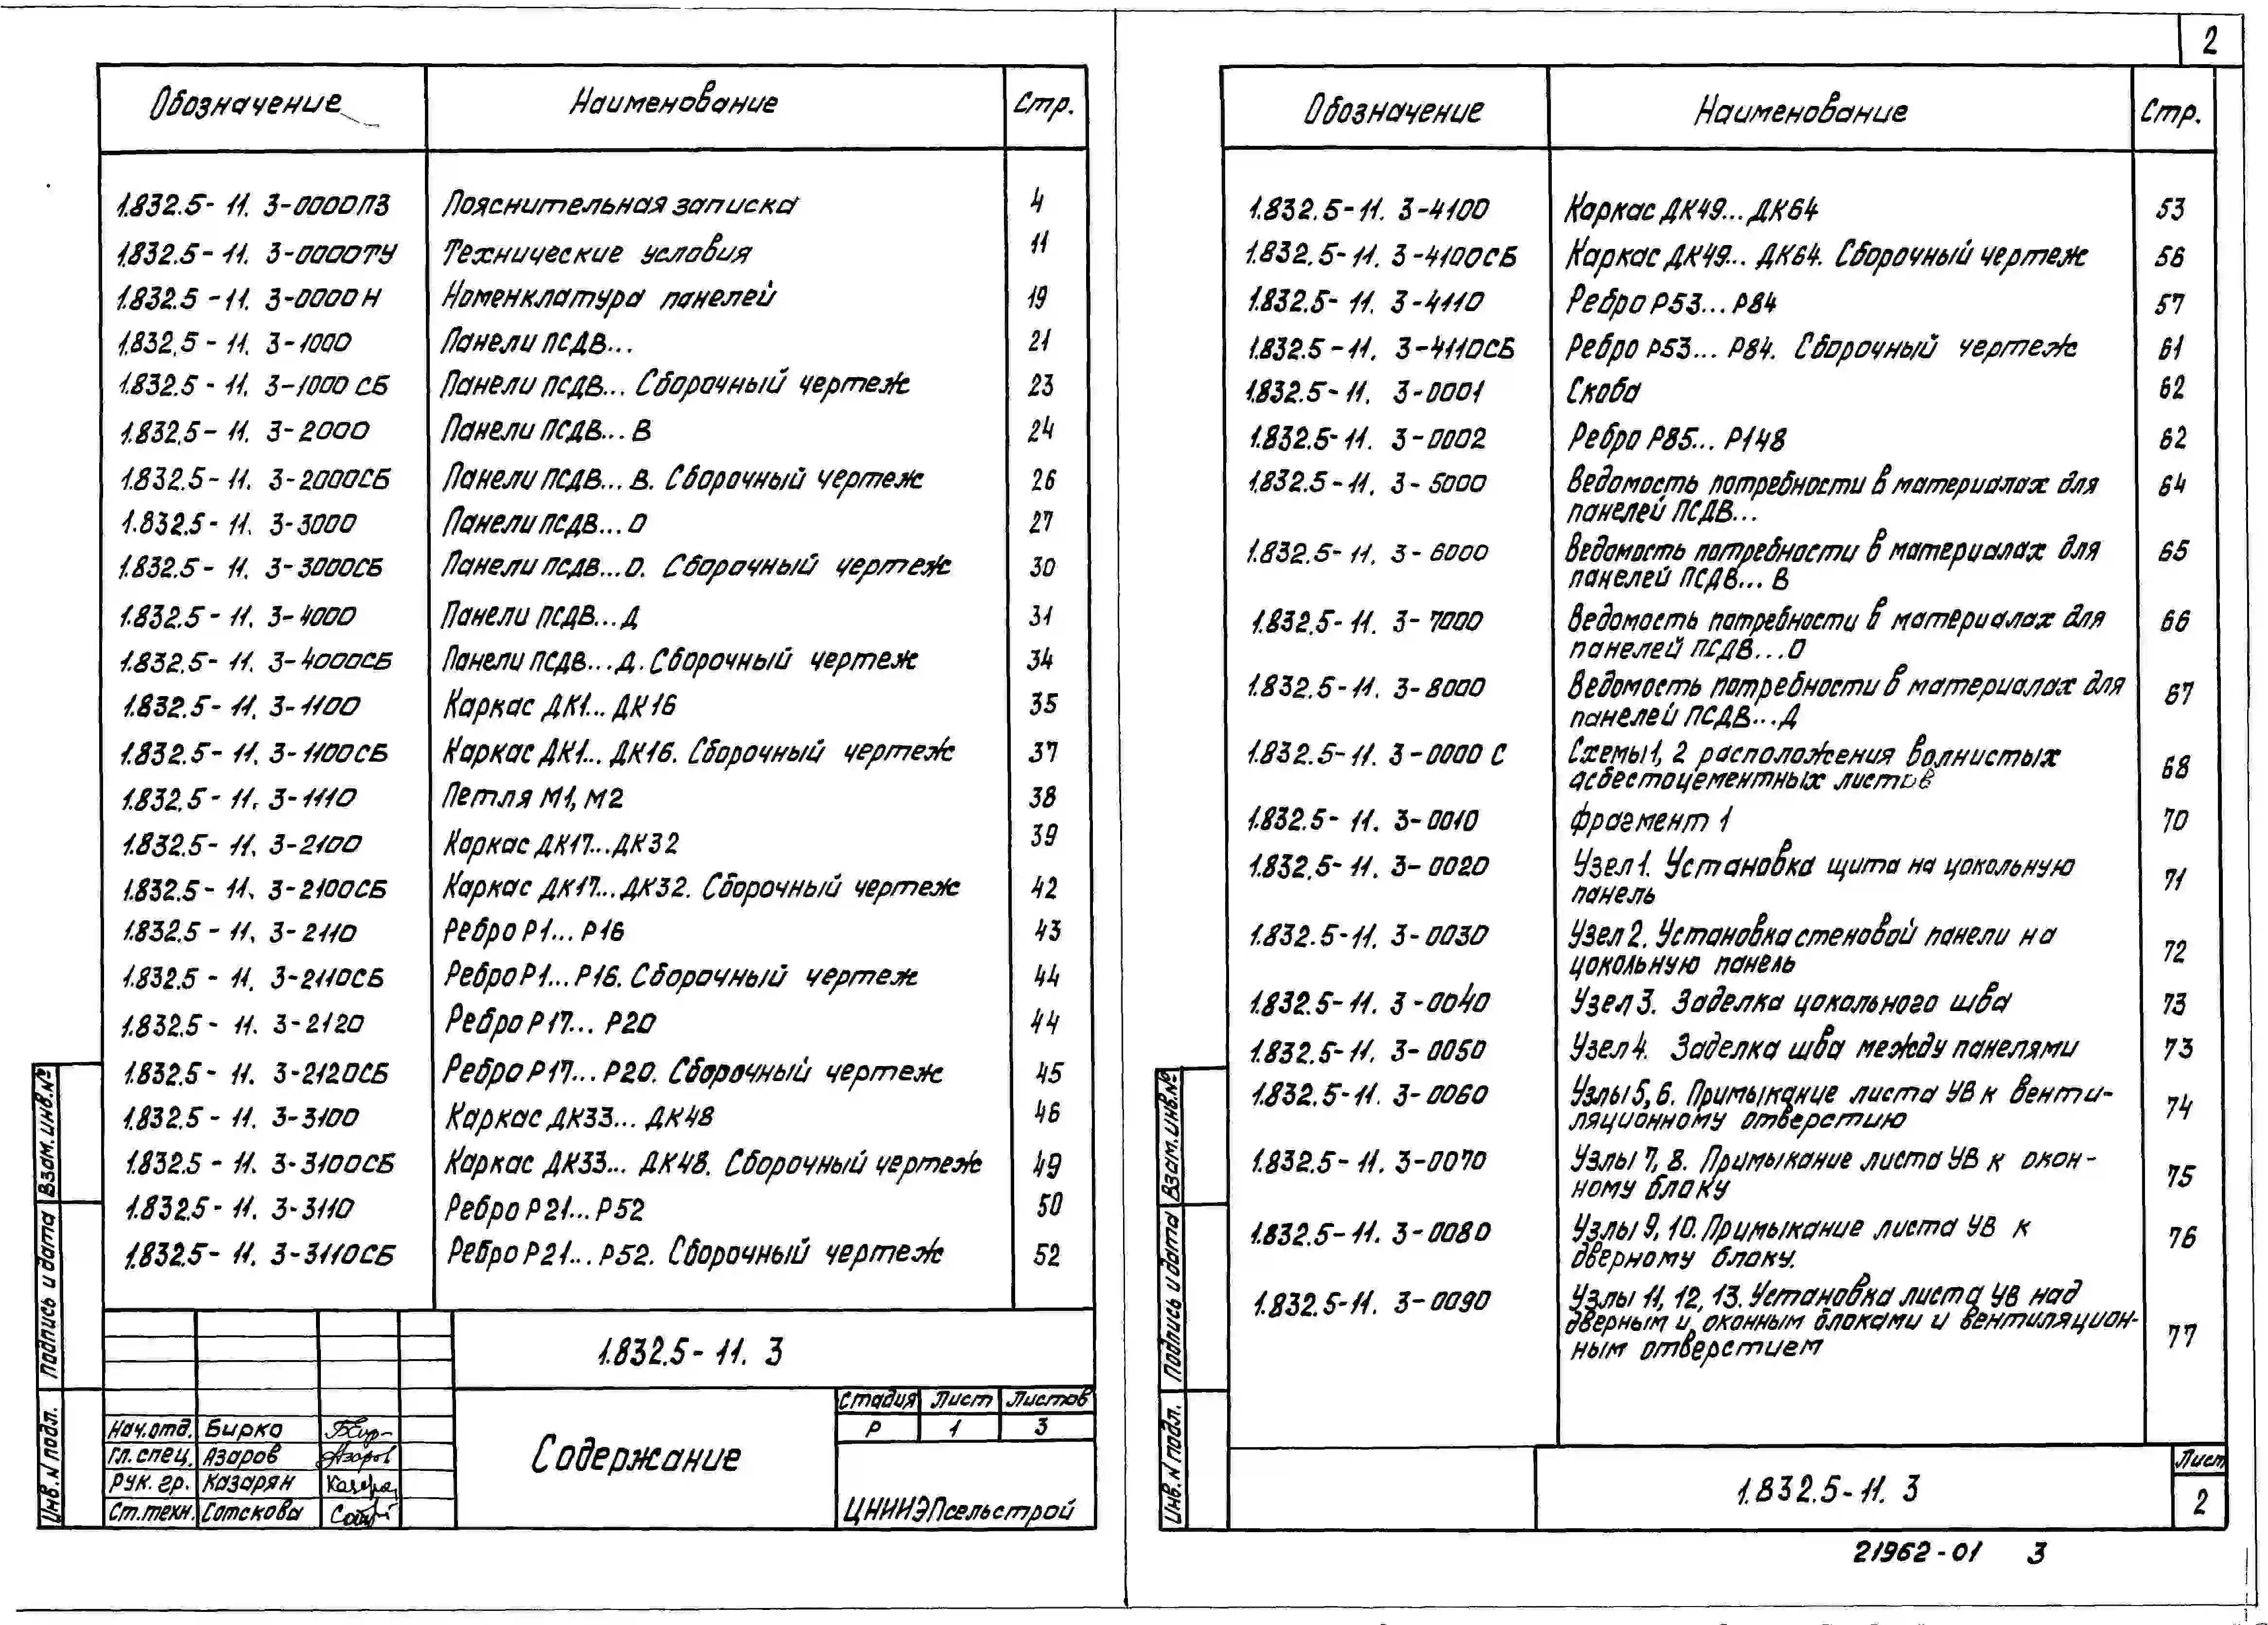 2
Обозначение Наименование Стр.
1.832.5-11. 3-0000ПЗ Пояснительная записка 4
1.832.5-11. 3-0000ТУ Технические условия 11
1.832.5-11. 3-0000Н Номенклатура панелей 19
1.832.5-11. 3-1000 Панели ПСДВ... 21
1.832.5-11. 3-1000 СБ Панели ПСДВ... Сборочный чертеж 23
1.832.5-11. 3-2000 Панели ПСДВ...В 24
1.832.5-11. 3-2000СБ Панели ПСДВ...В. Сборочный чертеж 26
1.832.5-11. 3-3000 Панели ПСДВ...О 27
1.832.5-11. 3-3000СБ Панели ПСДВ...О. Сборочный чертеж 30
1.832.5-11. 3-4000 Панели ПСДВ...Д 31
1.832.5-11. 3-4000СБ Панели ПСДВ...Д. Сборочный чертеж 34
1.832.5-11. 3-1100 Каркас ДК1...ДК16 35
1.832.5-11. 3-1100СБ Каркас ДК1...ДК16. Сборочный чертеж 37
1.832.5-11. 3-1110 Петля М1, М2 38
1.832.5-11. 3-2100 Каркас ДК17...ДК32 39
1.832.5-11. 3-2100СБ Каркас ДК17...ДК32. Сборочный чертеж 42
1.832.5-11. 3-2110 Ребро Р1...Р16 43
1.832.5-11. 3-2110СБ Ребро Р1...Р16. Сборочный чертеж 44
1.832.5-11. 3-2120 Ребро Р17...Р20 44
1.832.5-11. 3-2120СБ Ребро Р17...Р20. Сборочный чертеж 45
1.832.5-11. 3-3100 Каркас ДК33...ДК48 46
1.832.5-11. 3-3100СБ Каркас ДК33...ДК48. Сборочный чертеж 49
1.832.5-11. 3-3110 Ребро Р21...Р52 50
1.832.5-11. 3-3110СБ Ребро Р21...Р52. Сборочный чертеж 52
1.832.5-11. 3
Содержание
Стадия Лист Листов
Р 1 3
Нач.отд. Бирко
Гл.спец. Азаров Азаров
Рук. гр. Казарян
Ст.техн. Сотскова
ЦНИИЭПсельстрой
Взам.инв.№
Подпись и дата
Инв.№ подл.
Обозначение Наименование Стр.
1.832.5-11. 3-4100 Каркас ДК49...ДК64 53
1.832.5-11. 3-4100СБ Каркас ДК49...ДК64. Сборочный чертеж 56
1.832.5-11. 3-4110 Ребро Р53...Р84 57
1.832.5-11. 3-4110СБ Ребро Р53...Р84. Сборочный чертеж 61
1.832.5-11. 3-0001 Скоба 62
1.832.5-11. 3-0002 Ребро Р85...Р148 62
1.832.5-11. 3-5000 Ведомость потребности в материалах для 64
панелей ПСДВ...
1.832.5-11. 3-6000 Ведомость потребности в материалах для 65
панелей ПСДВ...В
1.832.5-11. 3-7000 Ведомость потребности в материалах для 66
панелей ПСДВ...О
1.832.5-11. 3-8000 Ведомость потребности в материалах для 67
панелей ПСДВ...Д
1.832.5-11. 3-0000 С Схемы 1, 2 расположения волнистых
асбестоцементных листов 68
1.832.5-11. 3-0010 Фрагмент 1 70
1.832.5-11. 3-0020 Узел 1. Установка щита на цокольную
панель 71
1.832.5-11. 3-0030 Узел 2. Установка стеновой панели на
цокольную панель 72
1.832.5-11. 3-0040 Узел 3. Заделка цокольного шва 73
1.832.5-11. 3-0050 Узел 4. Заделка шва между панелями 73
1.832.5-11. 3-0060 Узлы 5, 6. Примыкание листа УВ к венти-
ляционному отверстию 74
1.832.5-11. 3-0070 Узлы 7, 8. Примыкание листа УВ к окон-
ному блоку 75
1.832.5-11. 3-0080 Узлы 9, 10. Примыкание листа УВ к
дверному блоку. 76
1.832.5-11. 3-0090 Узлы 11, 12, 13. Установка листа УВ над
дверным и оконным блоками и вентиляцион-
ным отверстием 77
1.832.5-11. 3
Лист
2
Взам.инв.№
Подпись и дата
Инв.№ подл.
21962-01 3